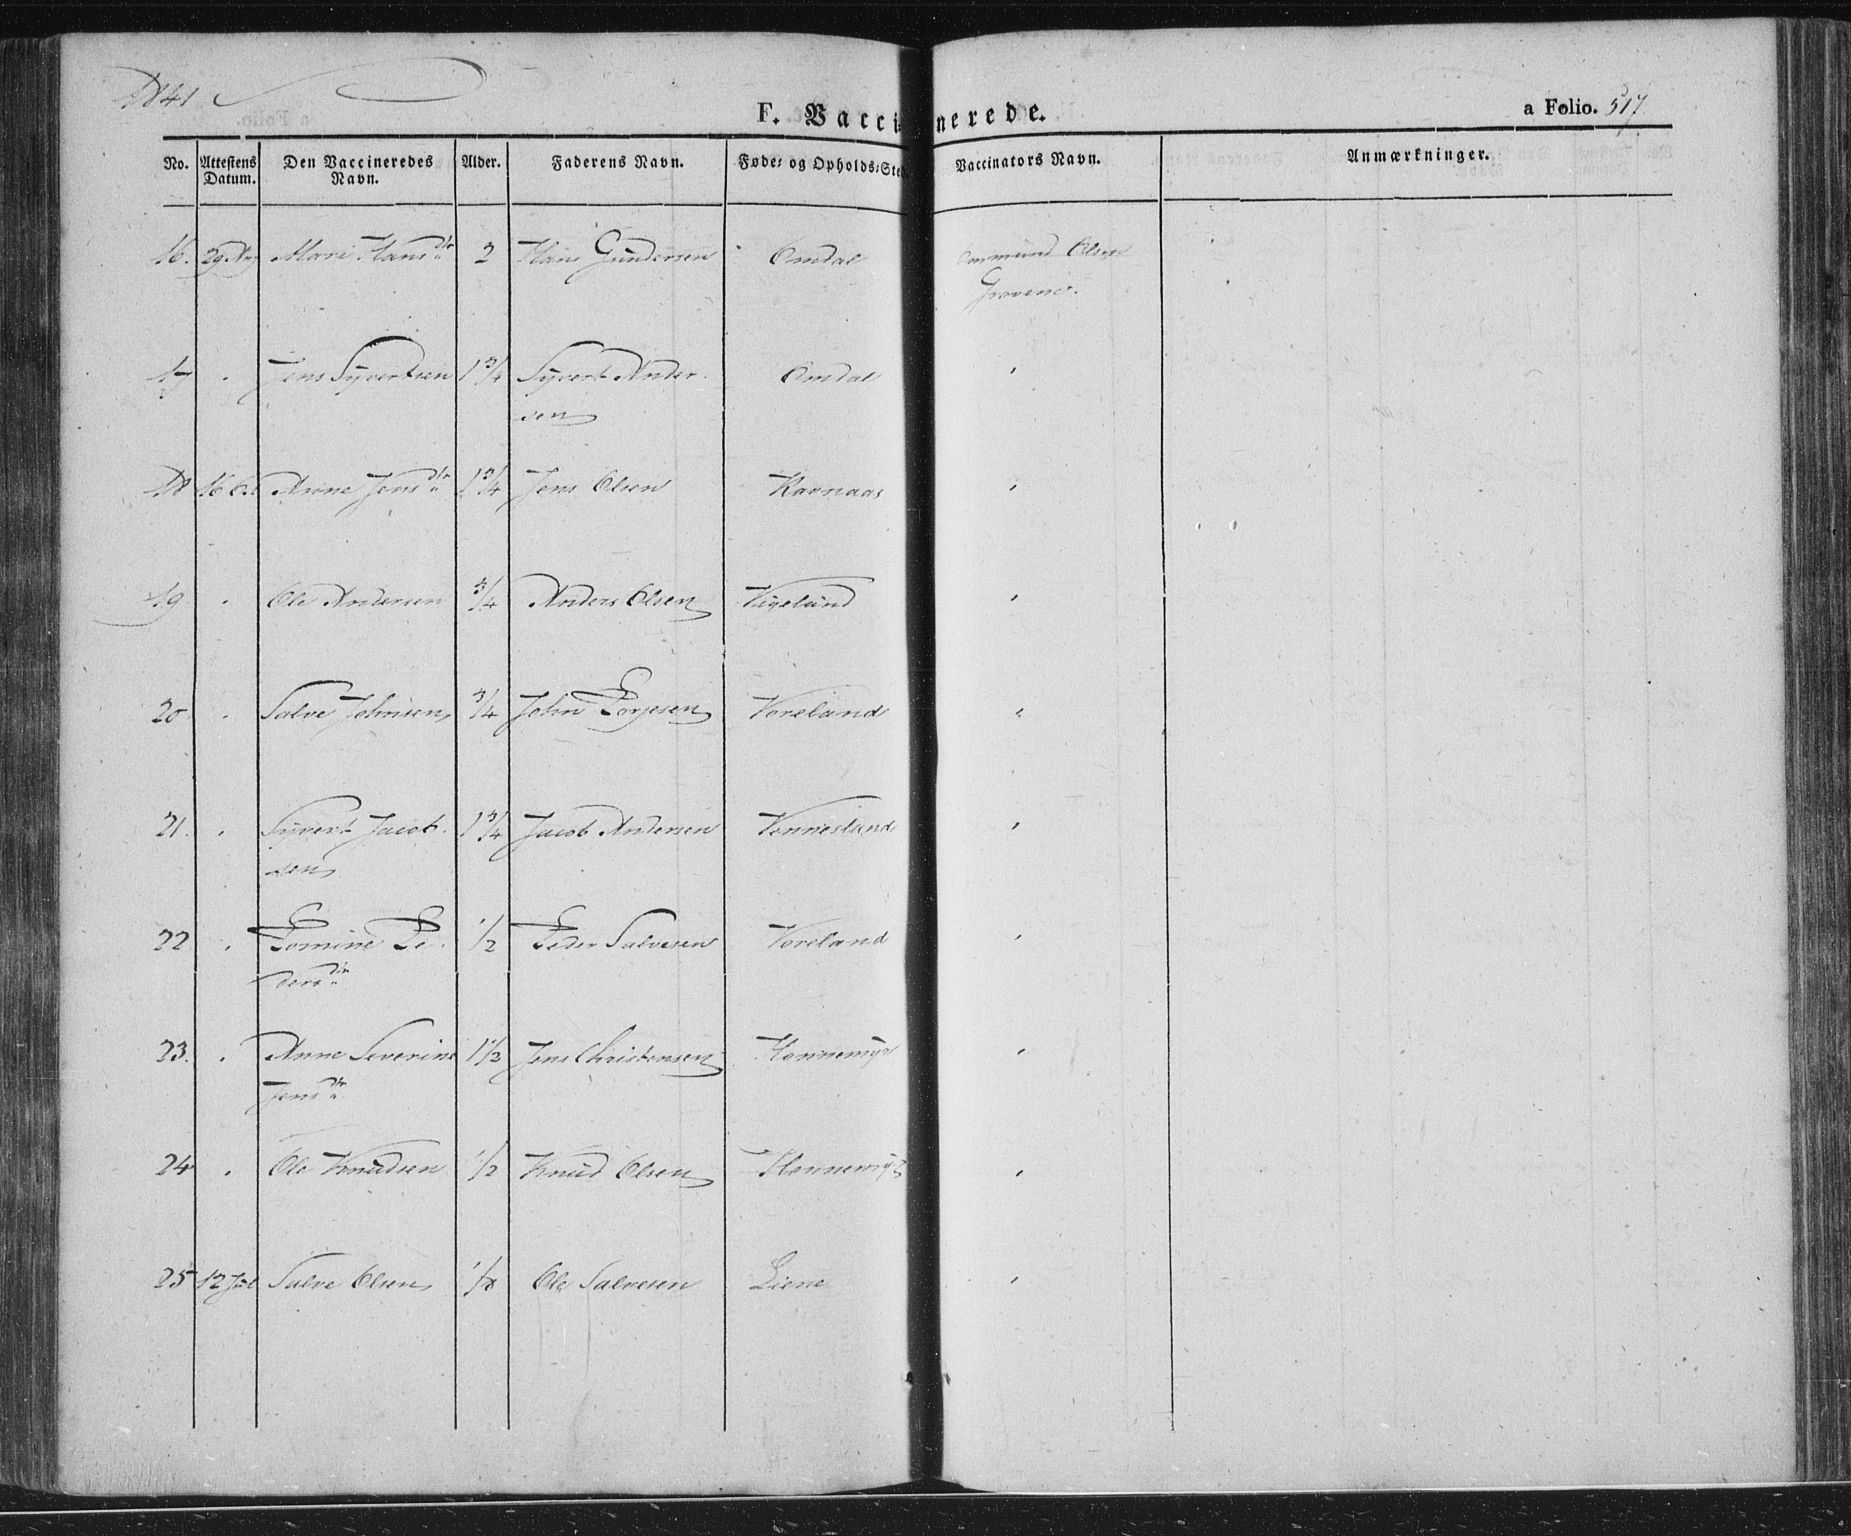 1841
F. Vaccinerede.
a Folio. 517.
No. Attestens Datum. Den Vaccineredes Navn. Alder. Faderens Navn. Føde- og Opholds-Sted Vaccinators Navn. Anmærkninger.
16. 29 Aug Mari Hansdtr 2 Hans Gundersen Omdal Ommund Olsen
Grovene.
17 . Jens Syvertsen 1 3/4 Syvert Ander-
sen
Omdal
18 16 Anne Jensdtr 1 3/4 Jens Olsen Ravnaas
19 . Ole Andersen 3/4 Anders Olsen Vigeland
20 . Salve Johnsen 3/4 John Torjesen Voreland
21. . Syvert Jacob-
sen
1 3/4 Jacob Andersen Vennesland
22 . Tomine Pe-
dersdtr
1/2 Peder Salvesen Voreland
23. . Anne Severine
Jensdtr
1 1/2 Jens Christensen Honnemyr
24 . Ole Knudsen 1/2 Knud Olsen Honnemyr
25 12 Jul Salve Olsen 1/8 Ole Salvesen Liene